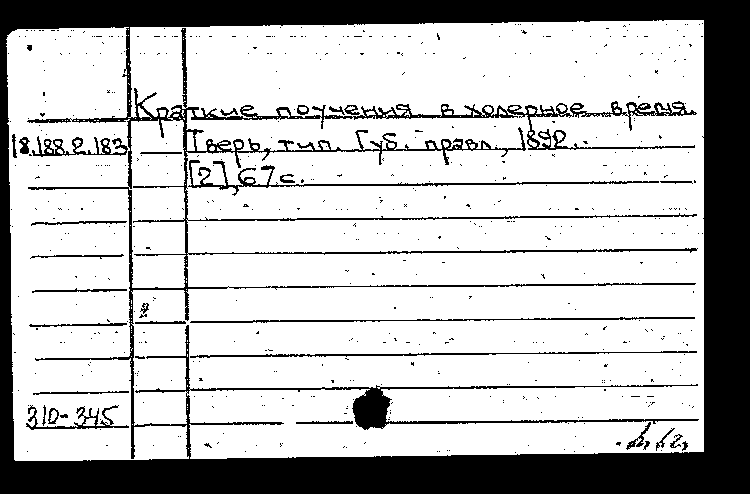 Краткие поучения в холерное время.
18.188.2.183 Тверь, тип. Губ. правл., 1892.
[2], 67 с.
310-345